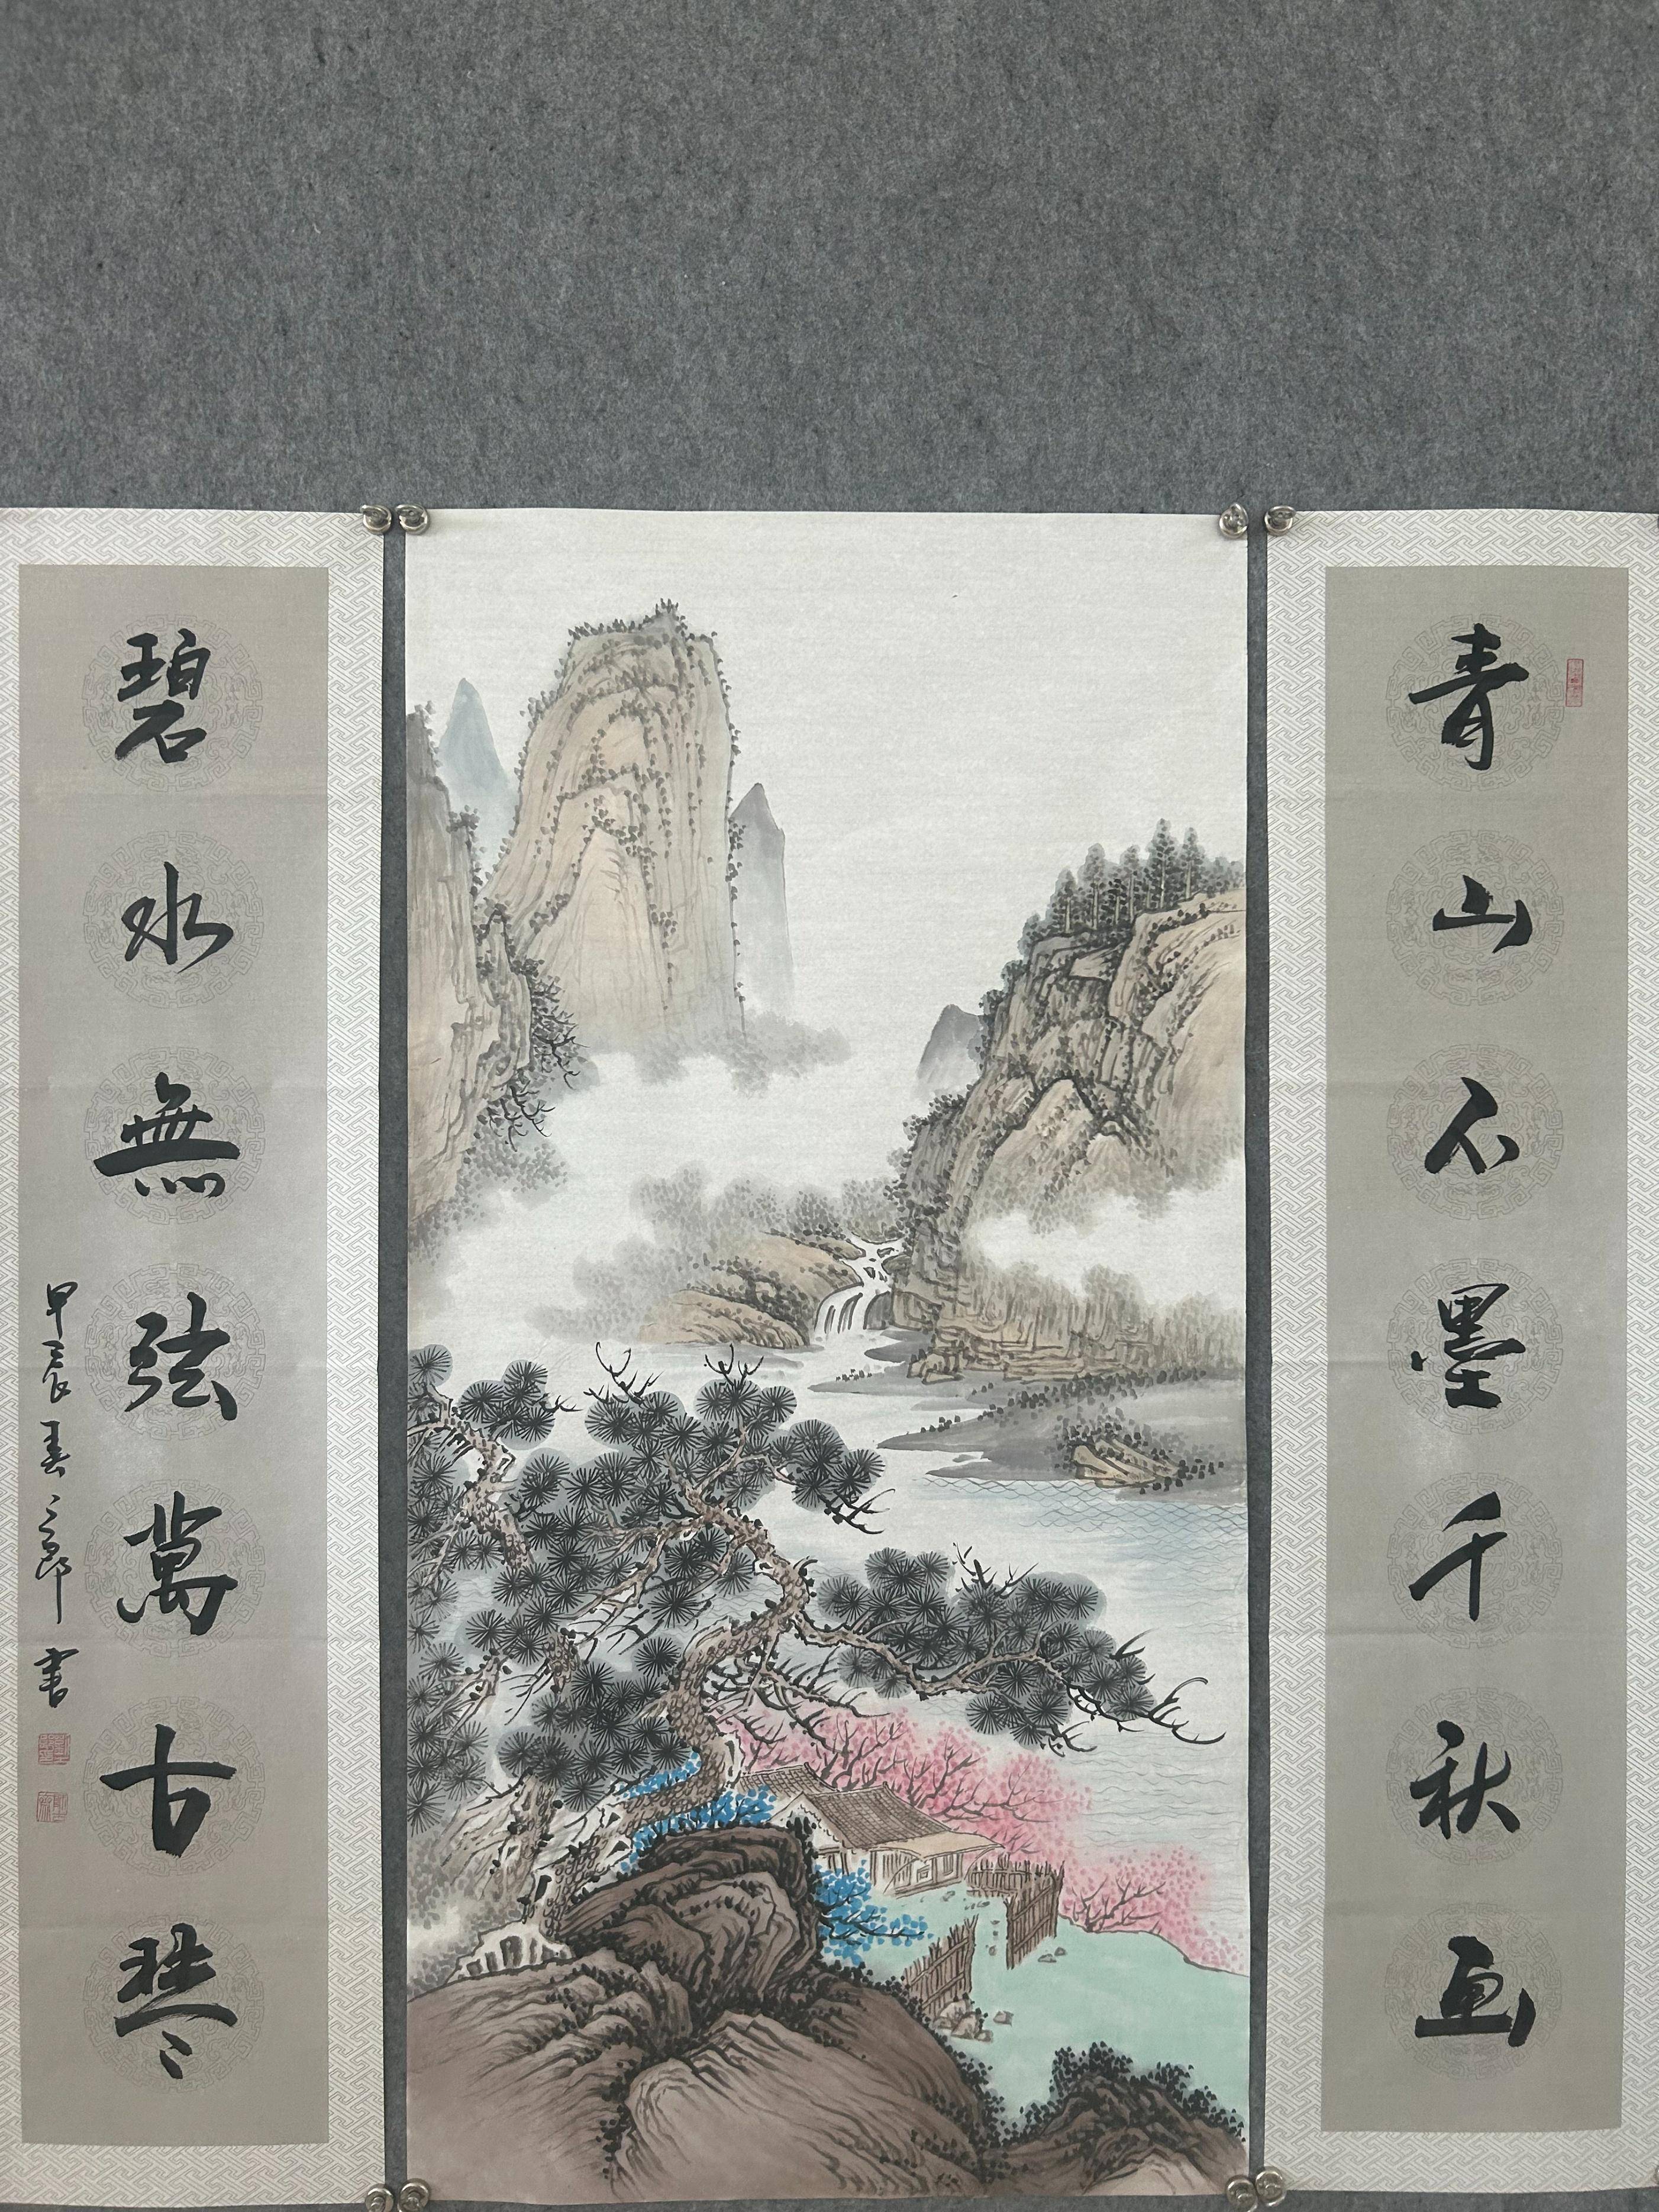 青山不墨千秋画
碧水無弦萬古琴
甲辰春三郎书